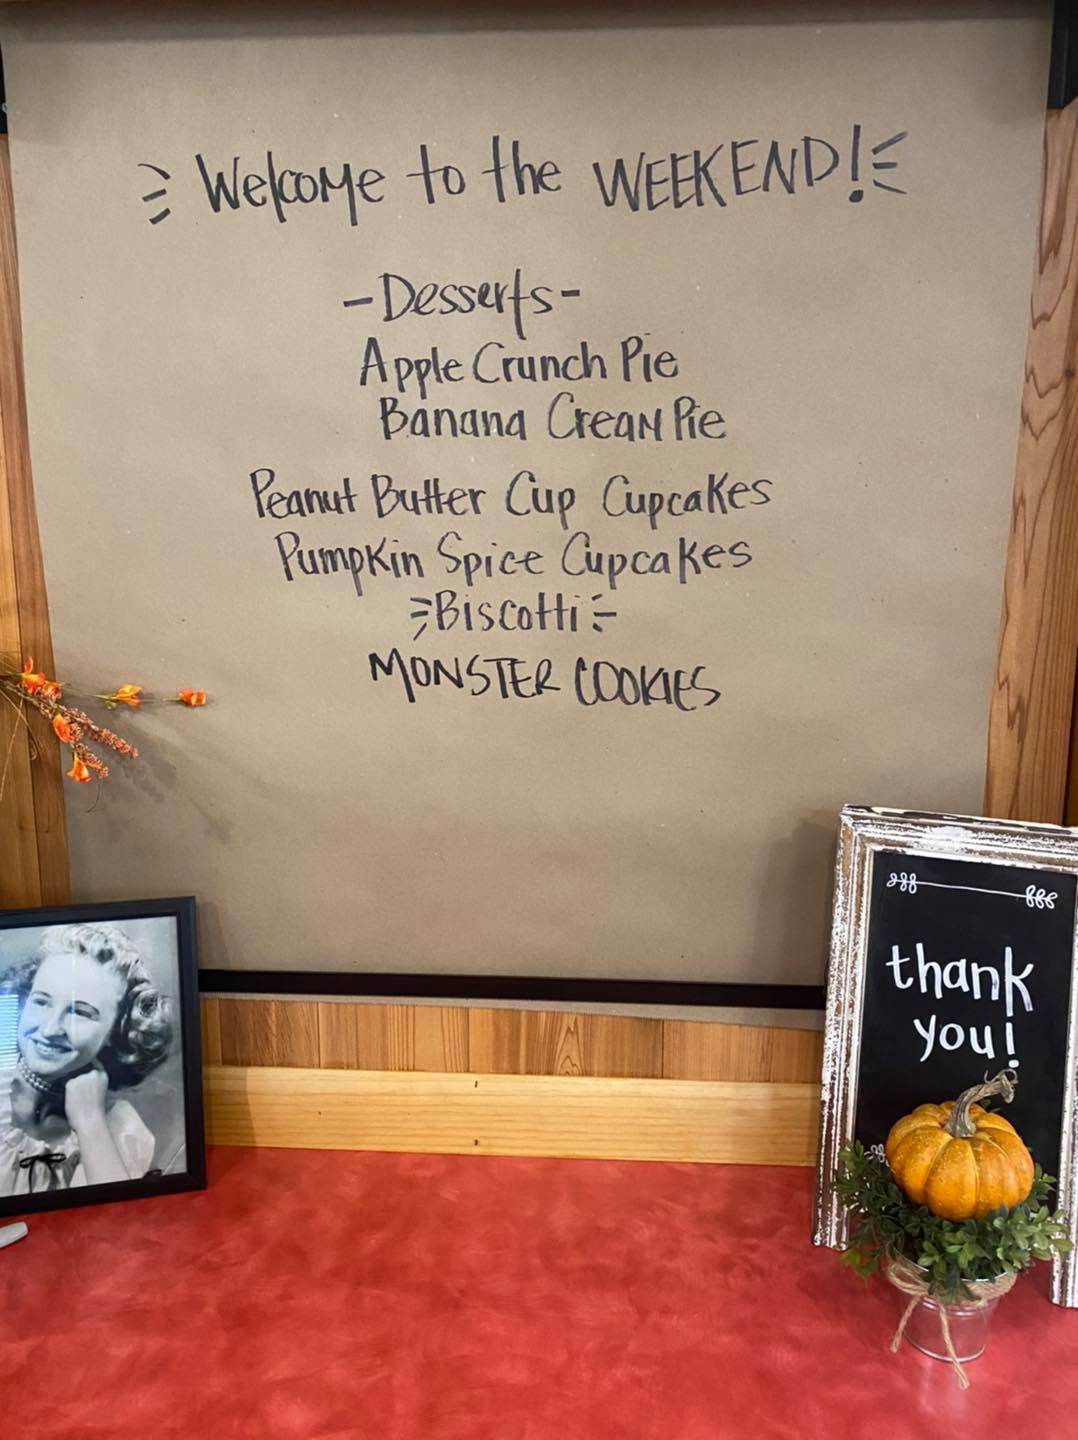 Welcome to the WEEKEND!
-Desserts-
Apple Crunch Pie
Banana Cream Pie
Peanut Butter Cup Cupcakes
Pumpkin Spice Cupcakes
Biscotti
MONSTER COOKIES
thank
you!